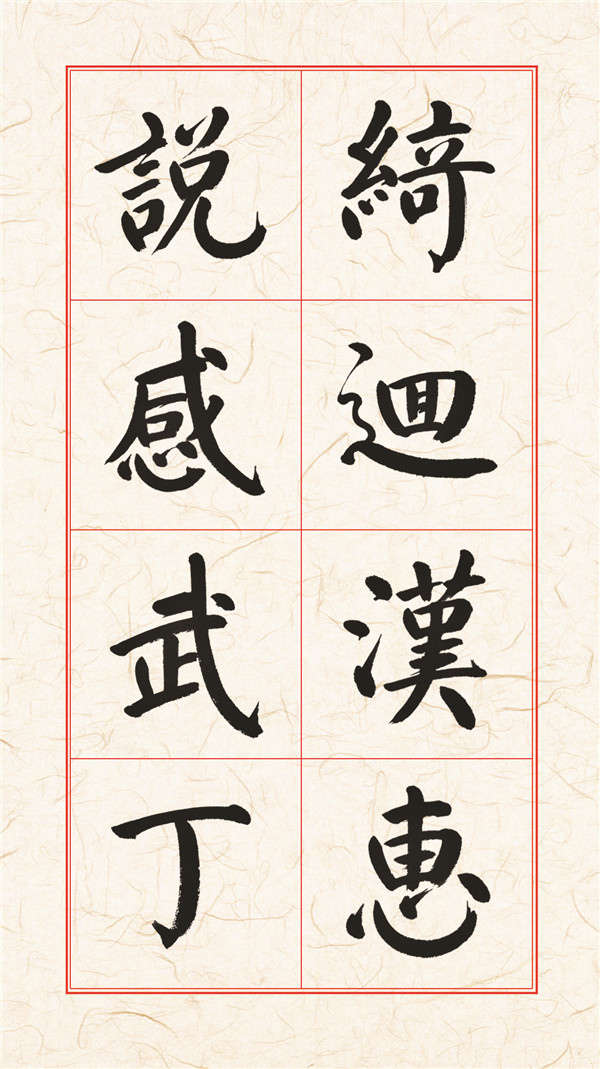 綺迴漢惠
說感武丁